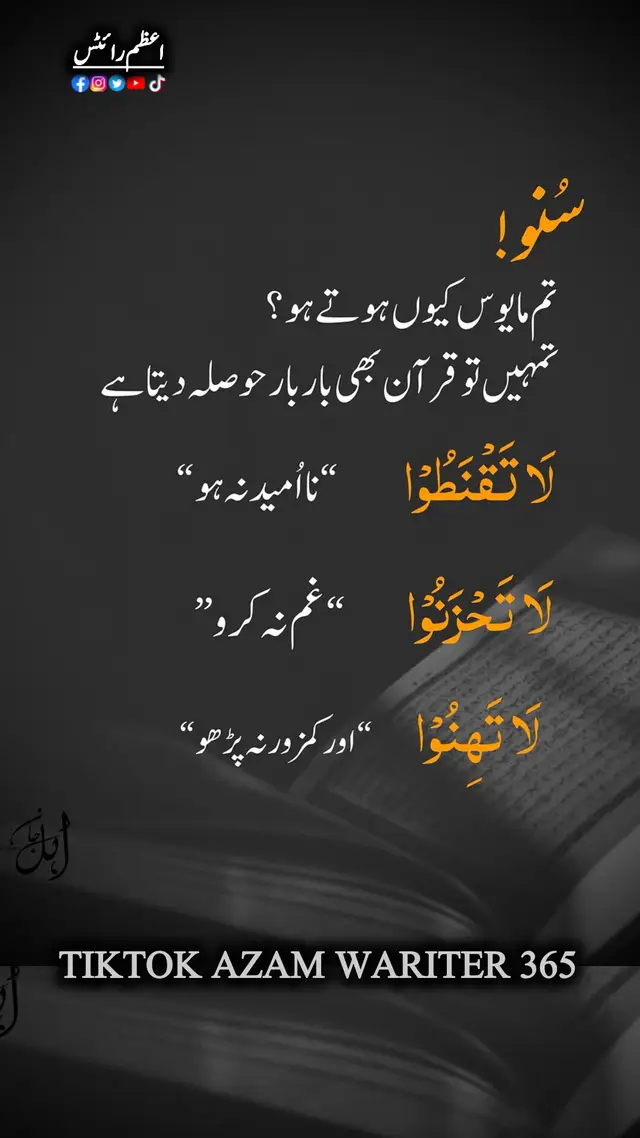 اعظم رائٹس
سُنو!
تم مایوس کیوں ہوتے ہو؟
تمہیں تو قرآن بھی بار بار حوصلہ دیتا ہے
لَا تَقْنَطُوْا “نا اُمید نہ ہو“
لَا تَحْزَنُوْا “غم نہ کرو”
لَا تَهِنُوْا “اور کمزور نہ پڑھو“
TIKTOK AZAM WARITER 365